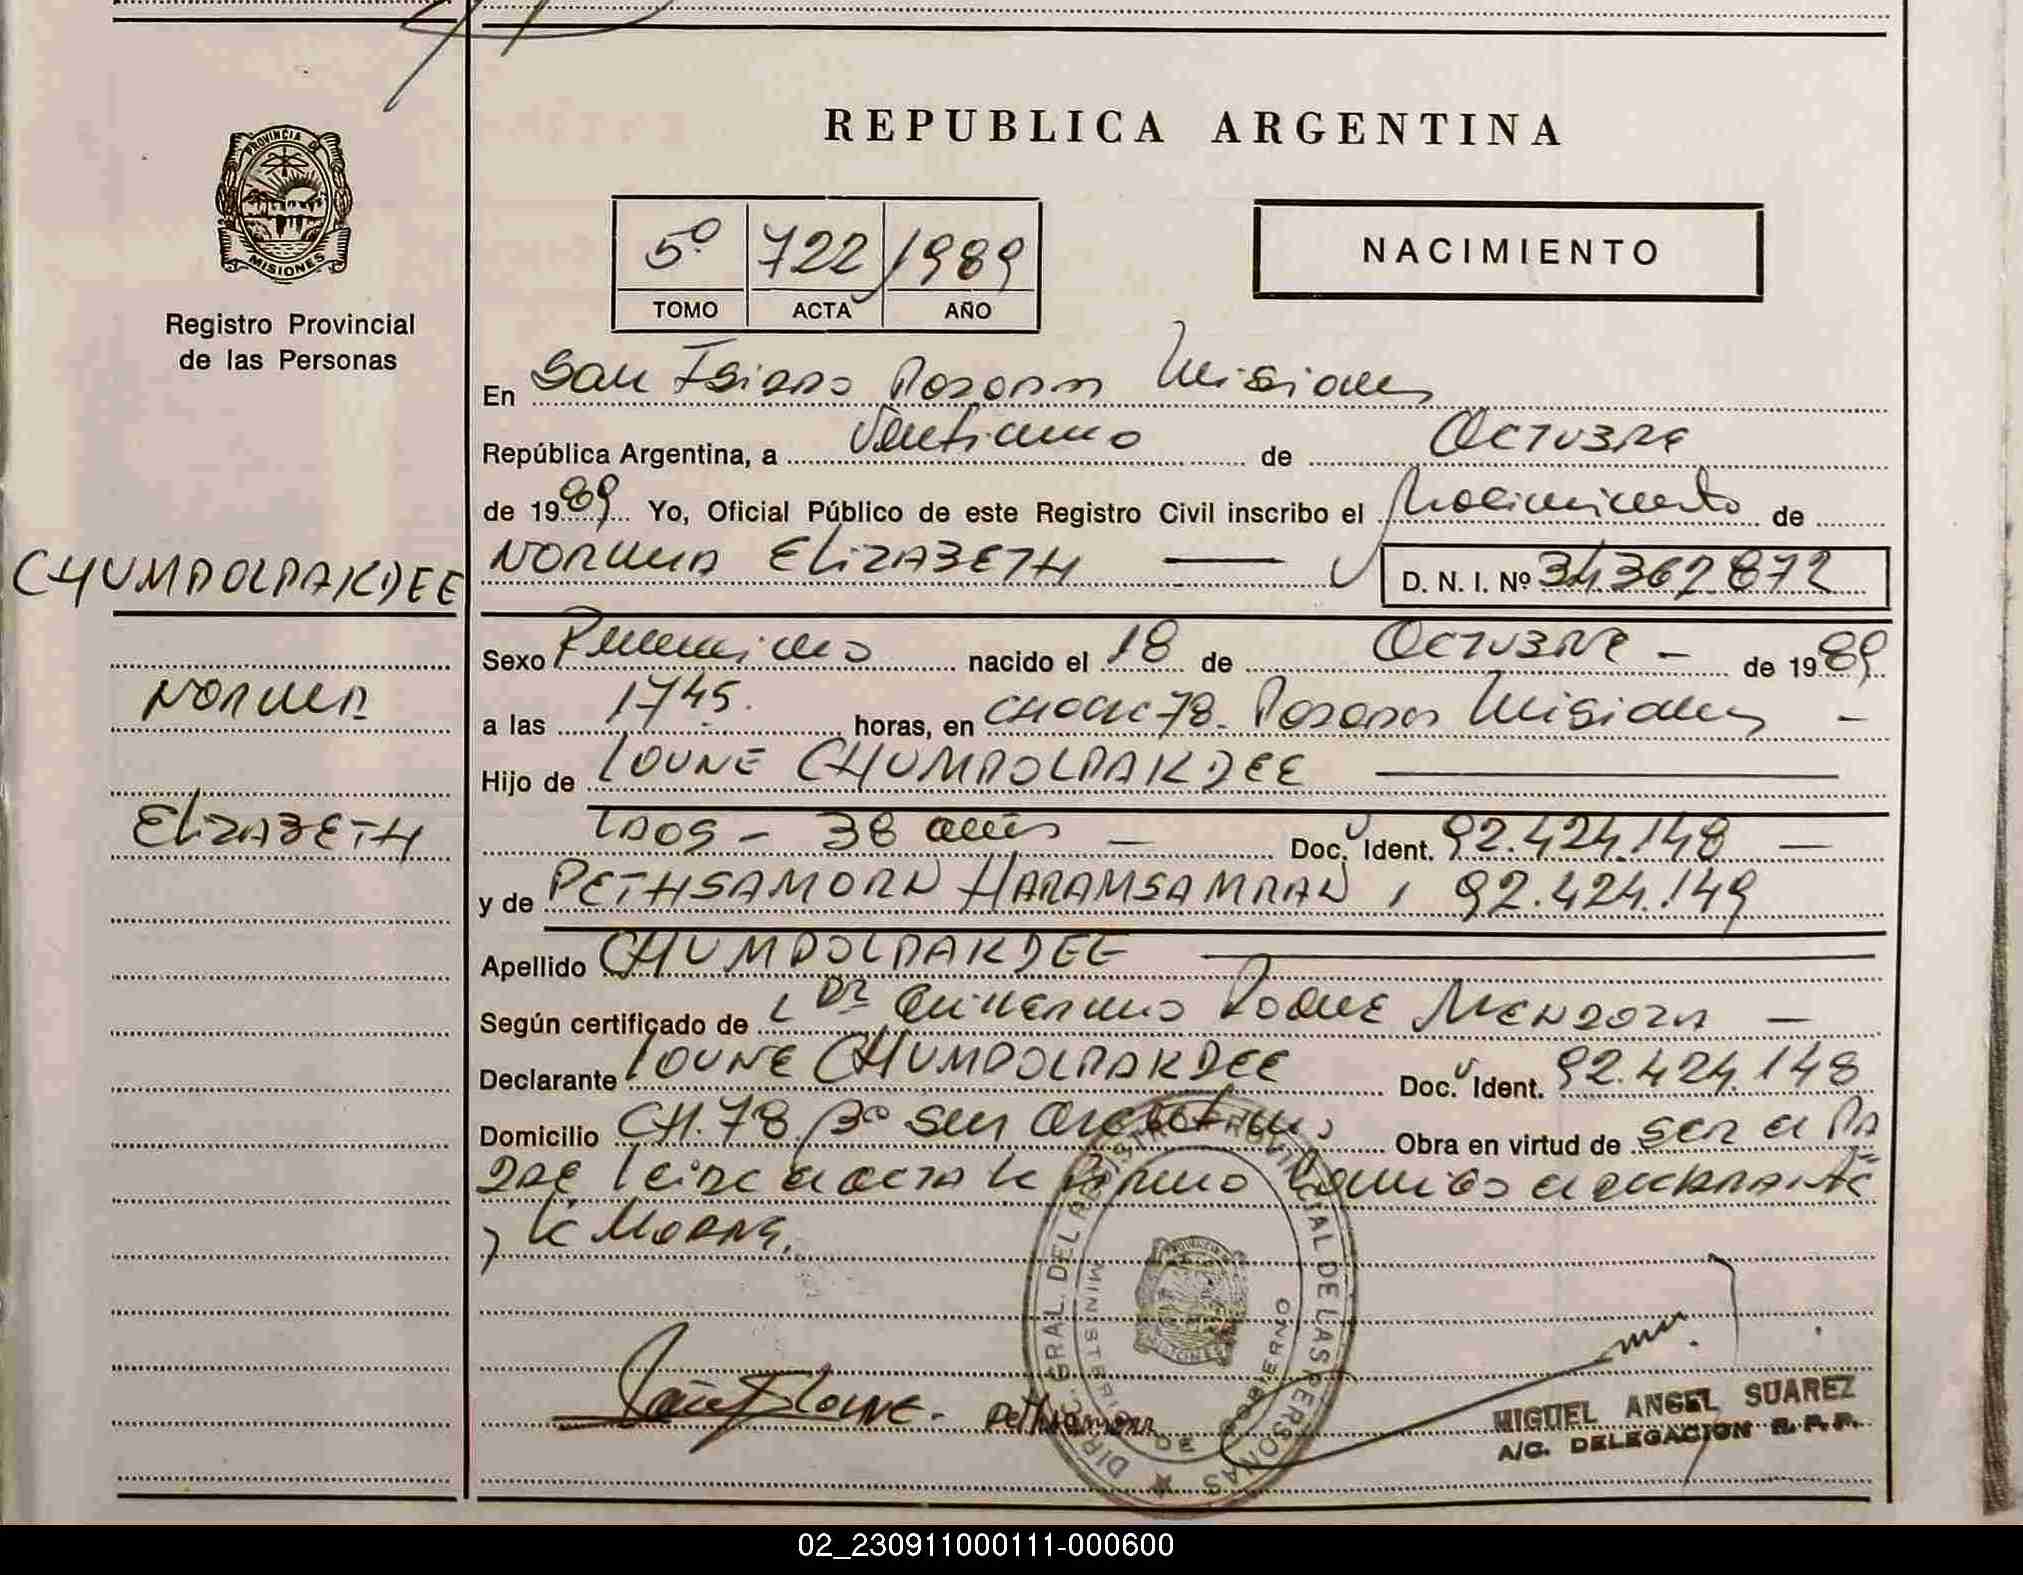 REPUBLICA ARGENTINA
PROVINCIA DE MISIONES
Registro Provincial
de las Personas
5º 722 / 1989
TOMO ACTA AÑO
NACIMIENTO
En San Isidro Posadas Misiones
República Argentina, a Ventiuno de Octubre
de 1989 Yo, Oficial Público de este Registro Civil inscribo el Nacimiento de
CHUMPOLPAKDEE
NORMA ELIZABETH D. N. I. Nº 34362872
Sexo Femenino nacido el 18 de Octubre - de 1989
NORMA
a las 1745. horas, en CHACRA 78. Posadas Misiones -
Hijo de LOUNE CHUMPOLPAKDEE
ELIZABETH
LAOS - 38 años - Doc. Ident. 92.424.148 -
y de PETHSAMORN HARAMSAMRAN, 92.424.149
Apellido CHUMPOLPAKDEE
Según certificado de Dr Guillermo Roque Mendoza -
Declarante LOUNE CHUMPOLPAKDEE Doc. Ident. 92.424.148
Domicilio CH. 78 Bº San Obra en virtud de ser el Pa
dre Leida el acta la firman Conmigo el declarante
y la Madre.
Loune. Pethsamorn
DIR. GRAL. DEL REGISTRO PROVINCIAL DE LAS PERSONAS
MINISTERIO DE GOBIERNO
MIGUEL ANGEL SUAREZ
A/C. DELEGACION R. P. P.
02_230911000111-000600